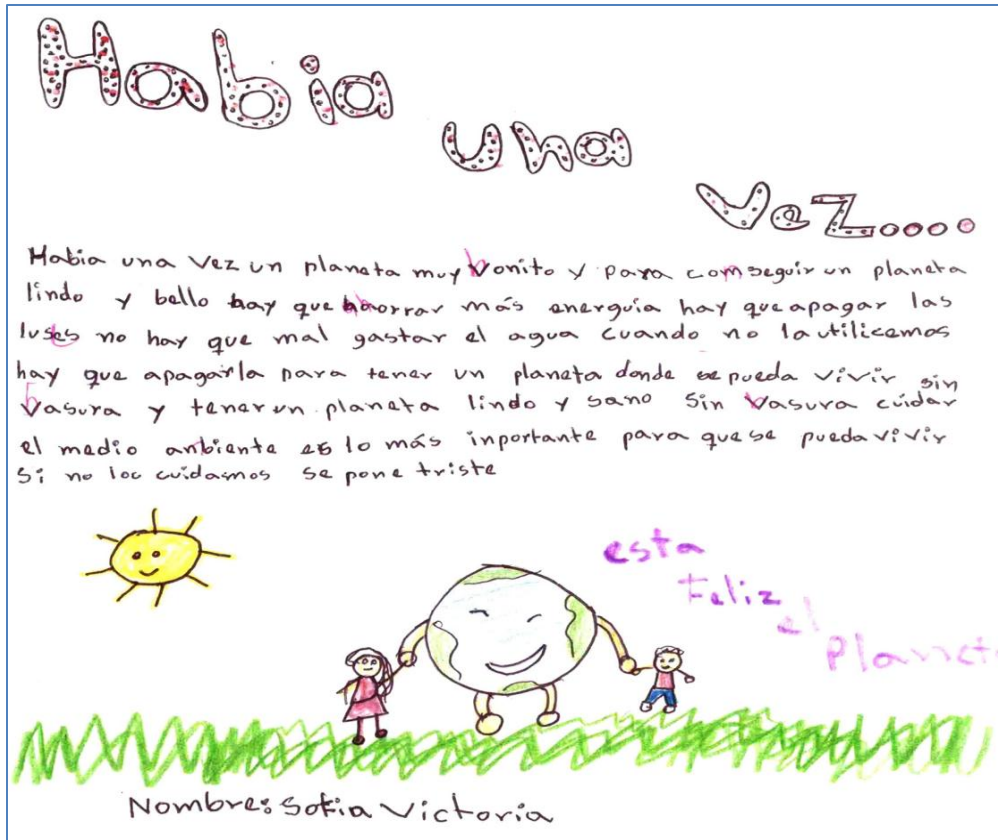 Habia
una
vez....
Habia una vez un planeta muy bonito y para comseguir un planeta
lindo y bello hay que ahorrar más energuía hay que apagar las
luses no hay que mal gastar el agua cuando no la utilicemos
hay que apagarla para tener un planeta donde se pueda vivir sin
basura y tener un planeta lindo y sano sin basura cuidar
el medio anbiente es lo más inportante para que se pueda vivir
si no loc cuidamos se pone triste
esta
Feliz
el
Planeta
Nombre: Sofia Victoria